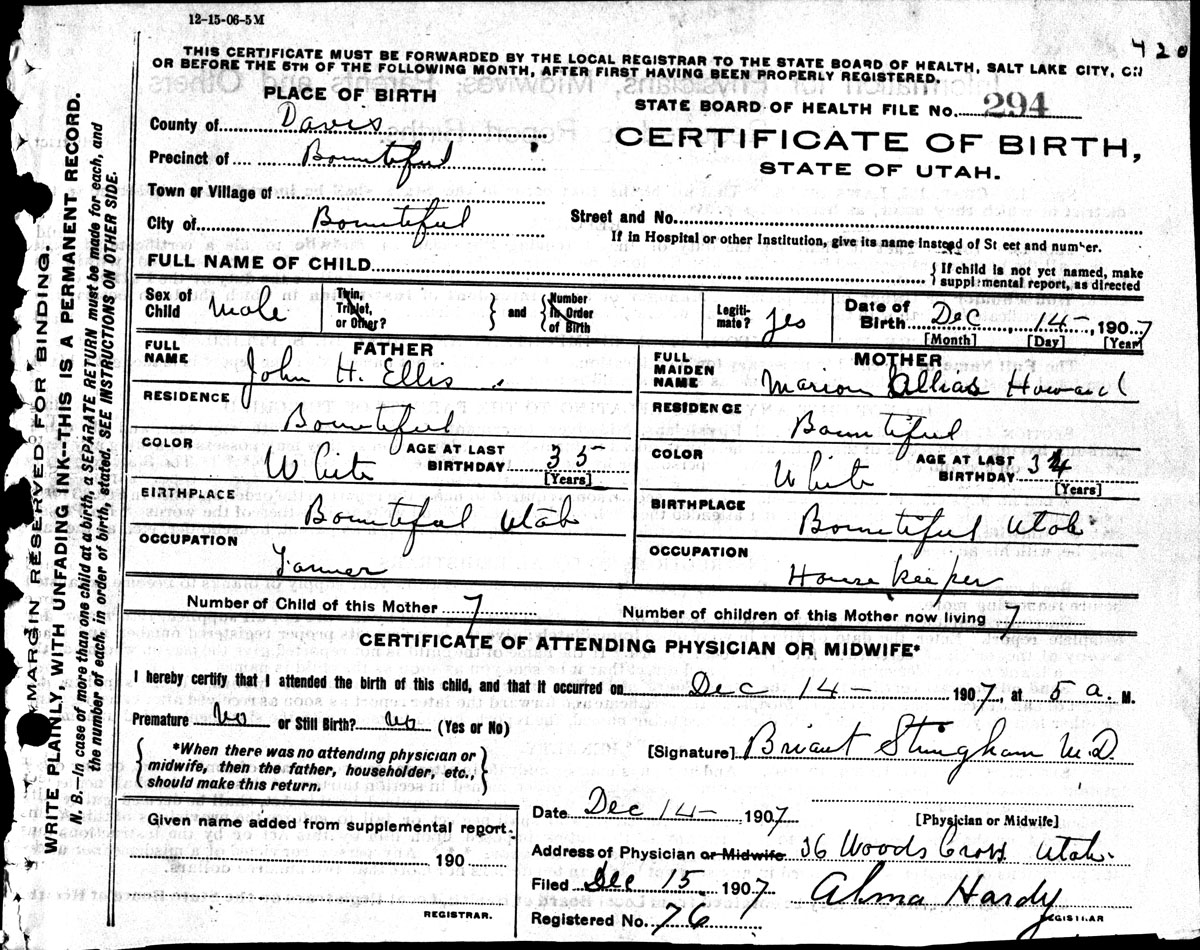 12-15-06-5M
420
THIS CERTIFICATE MUST BE FORWARDED BY THE LOCAL REGISTRAR TO THE STATE BOARD OF HEALTH, SALT LAKE CITY, ON
OR BEFORE THE 5TH OF THE FOLLOWING MONTH, AFTER FIRST HAVING BEEN PROPERLY REGISTERED.
PLACE OF BIRTH
STATE BOARD OF HEALTH FILE No. 294
County of Davis
CERTIFICATE OF BIRTH,
Precinct of Bountiful
STATE OF UTAH.
Town or Village of
City of Bountiful
Street and No.
If in Hospital or other Institution, give its name instead of St eet and number.
FULL NAME OF CHILD
{ If child is not yet named, make
supplemental report, as directed
Sex of Child Male
Twin, Triplet, or Other? } and { Number in Order of Birth
Legiti- mate? yes
Date of Birth Dec 14- 1907
[Month] [Day] [Year]
FATHER
FULL NAME John H. Ellis
RESIDENCE Bountiful
COLOR White AGE AT LAST BIRTHDAY 35 [Years]
BIRTHPLACE Bountiful Utah
OCCUPATION Farmer
MOTHER
FULL MAIDEN NAME Marion Howard
RESIDENCE Bountiful
COLOR White AGE AT LAST BIRTHDAY 34 [Years]
BIRTHPLACE Bountiful Utah
OCCUPATION House keeper
Number of Child of this Mother 7 Number of children of this Mother now living 7
CERTIFICATE OF ATTENDING PHYSICIAN OR MIDWIFE*
I hereby certify that I attended the birth of this child, and that it occurred on Dec 14- 1907, at 5 a. M.
Premature No or Still Birth? No (Yes or No)
{ *When there was no attending physician or
midwife, then the father, householder, etc.,
should make this return. }
[Signature] Briant Stringham M.D.
Date Dec 14- 1907
[Physician or Midwife]
Given name added from supplemental report
190
REGISTRAR.
Address of Physician or Midwife 36 Woods Cross Utah.
Filed Dec 15 1907 Alma Hardy
REGISTRAR
Registered No. 76
MARGIN RESERVED FOR BINDING
WRITE PLAINLY, WITH UNFADING INK--THIS IS A PERMANENT RECORD.
N. B.—In case of more than one child at a birth, a SEPARATE RETURN must be made for each, and
the number of each, in order of birth, stated. SEE INSTRUCTIONS ON OTHER SIDE.